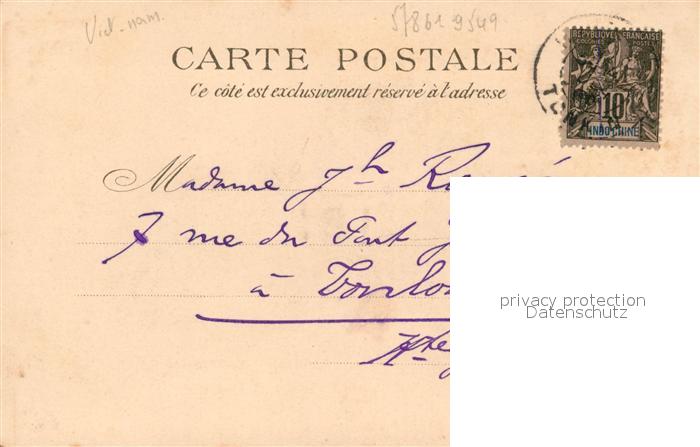 Viet-nam.
578619549
CARTE POSTALE
Ce côté est exclusivement réservé à l'adresse
RÉPUBLIQUE FRANÇAISE
COLONIES POSTES
10
INDO-CHINE
Madame Jh
7 rue du
à Toulo
Hte
privacy protection
Datenschutz